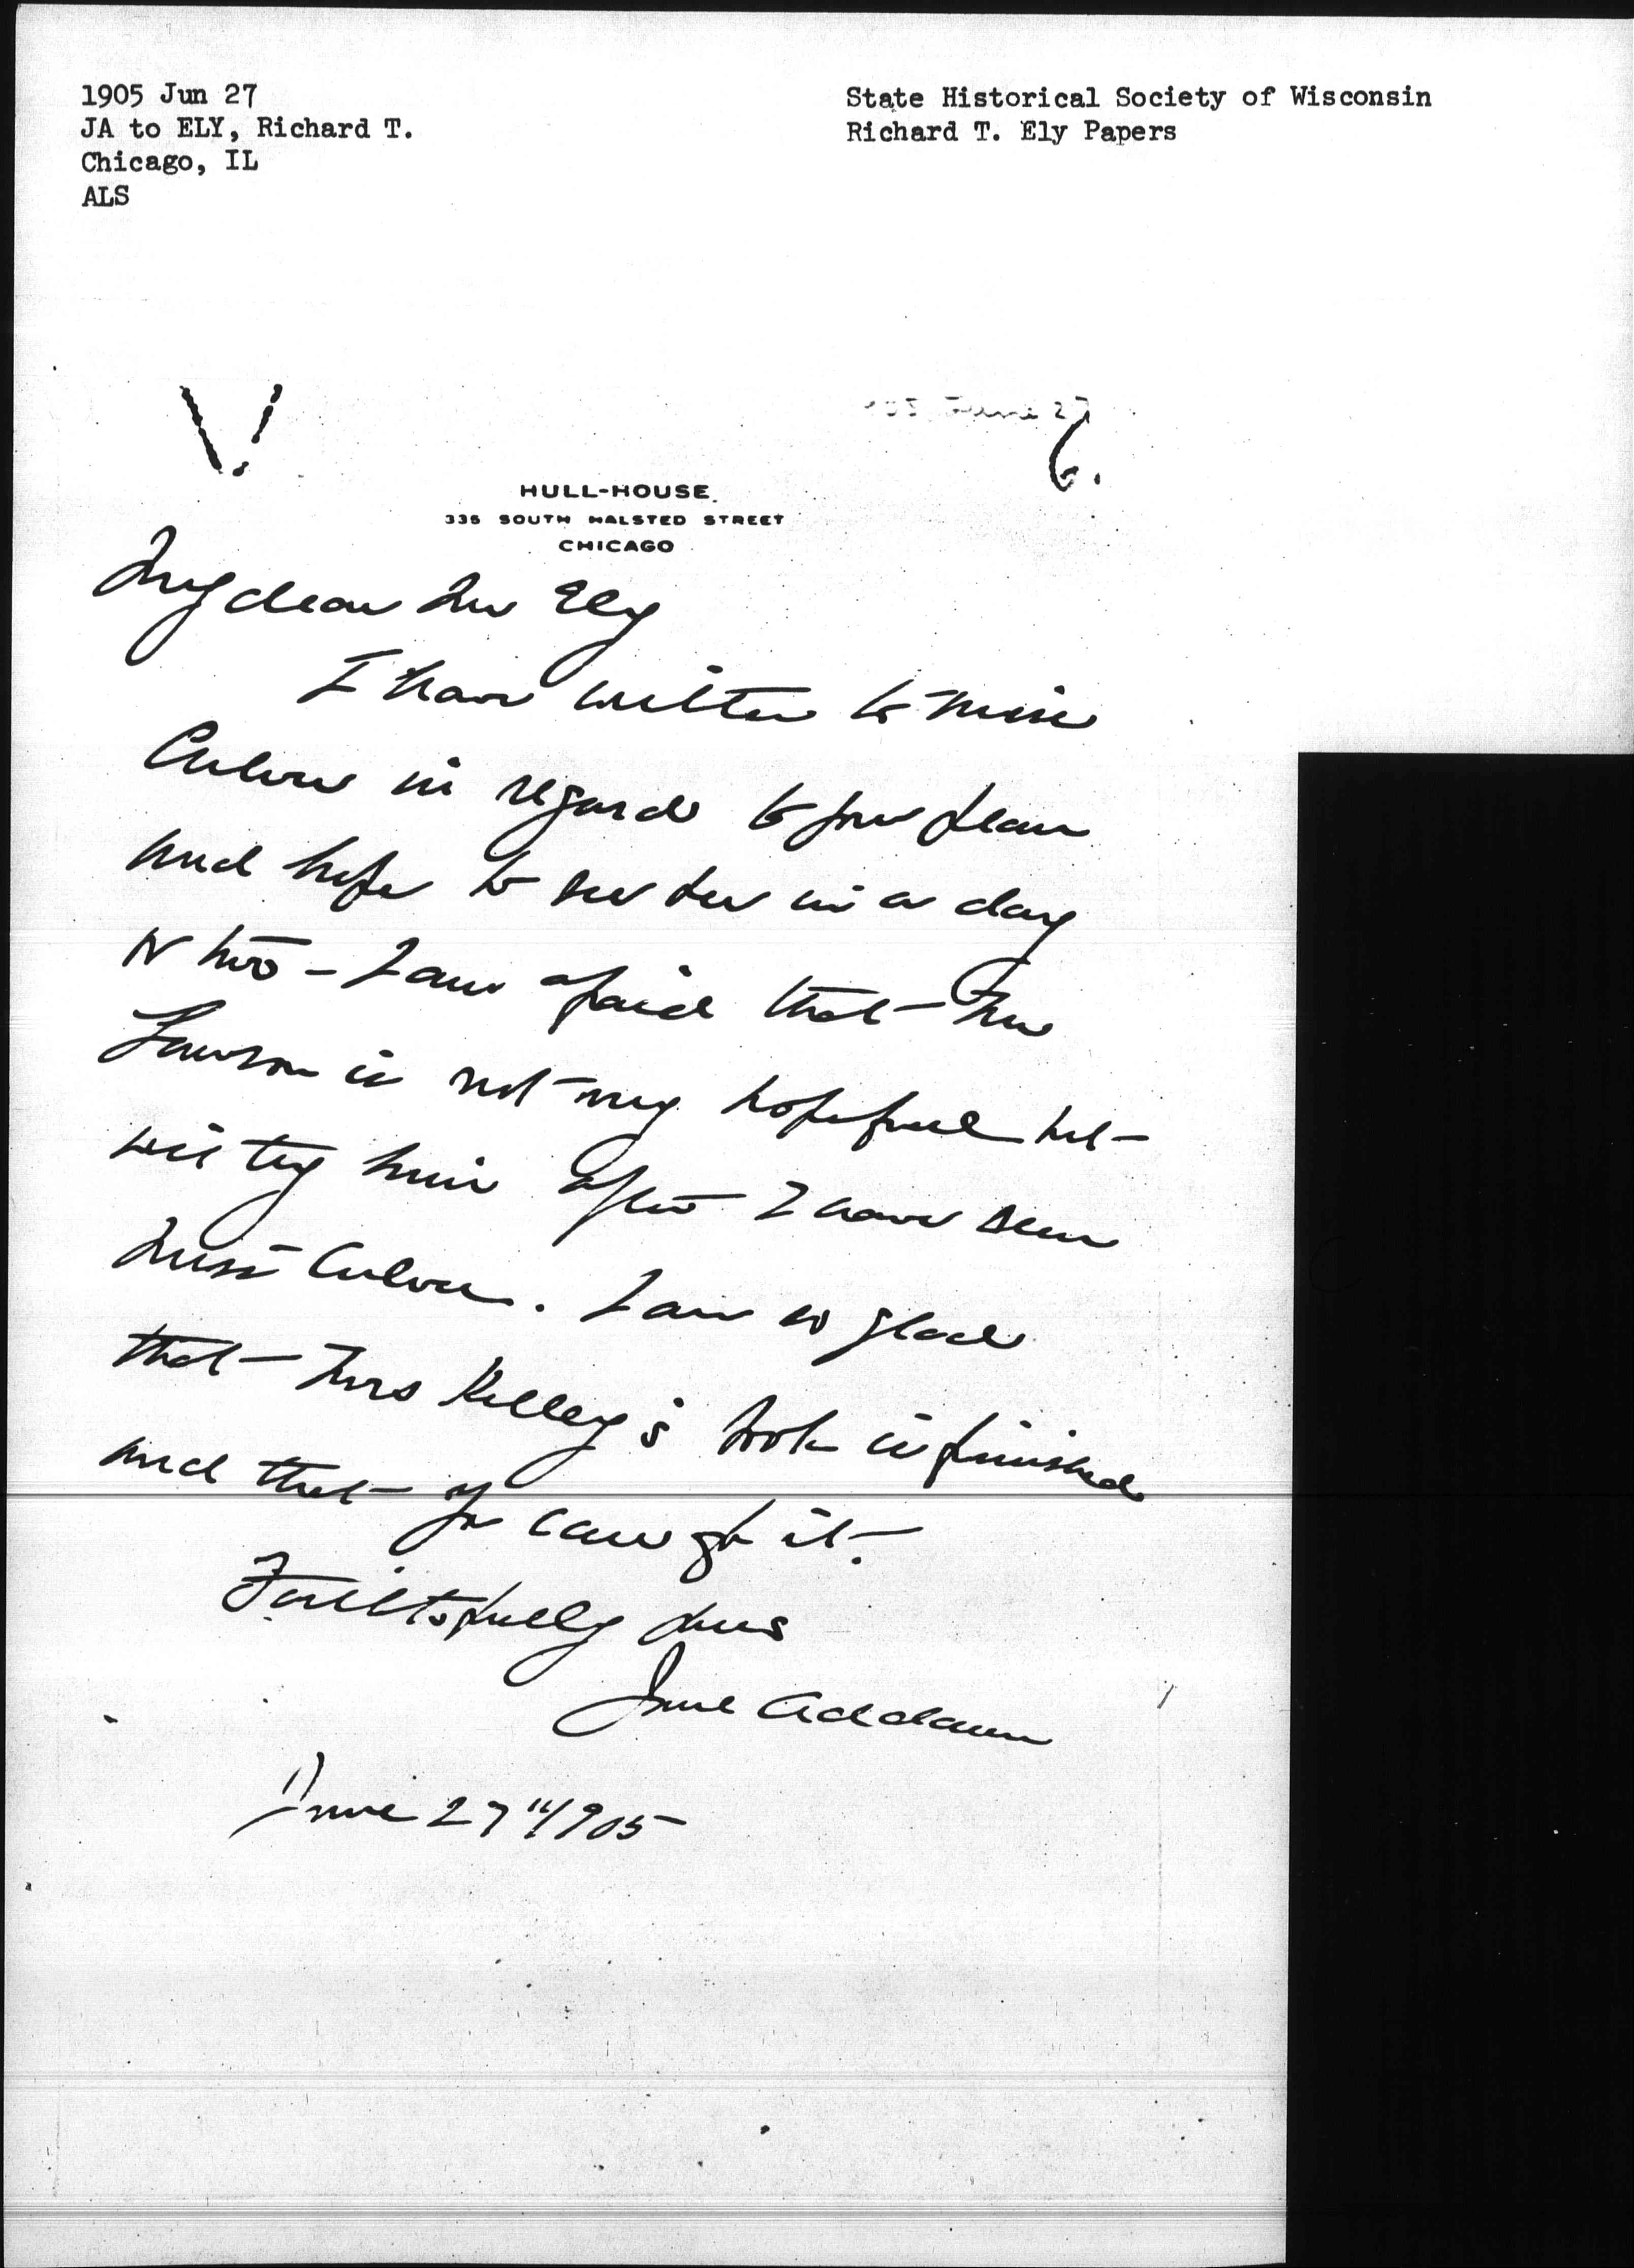 1905 Jun 27
JA to ELY, Richard T.
Chicago, IL
ALS
State Historical Society of Wisconsin
Richard T. Ely Papers
HULL-HOUSE
335 SOUTH HALSTED STREET
CHICAGO
My dear Mr Ely
I have written to Miss
Culver in regard to your plan
and hope to see her in a day
or two – I am afraid that Mr
Lawson is not very hopeful but
will try him after I have seen
Miss Culver. I am so glad
that Mrs Kelley's book is finished
and that you have got it.
Faithfully yours
Jane Addams
June 27" 1905